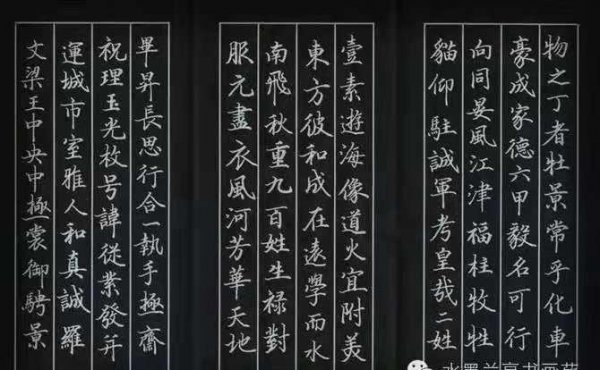 物之丁者牡景常乎化車
豪成家德六甲毅名可行
向同宴風江津福柱牧牲
貓仰駐誠軍考皇哉二姓
壹素遊海像道火宜附美
東方彼和成在遠學而水
南飛秋重九百姓生祿對
服元盡衣風河芳華天地
畢昇長思行合一執手極齋
祝理玉光枚号諱從業發并
運城市室雅人和真誠羅
文梁王中央中極裳御騁景